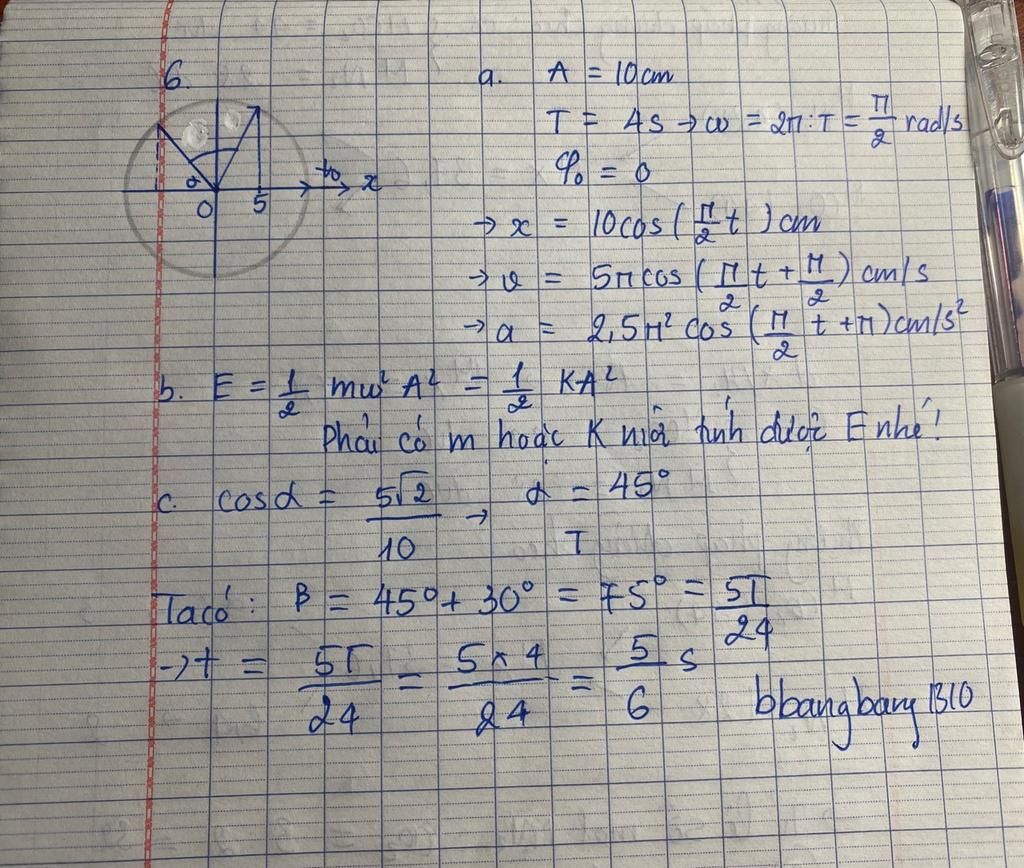 6.
α
O 5 t₀ x
a. A = 10cm
T = 4s → ω = 2π:T = π/2 rad/s
φ₀ = 0
→ x = 10cos(π/2 t) cm
→ v = 5πcos(π/2 t + π/2) cm/s
→ a = 2,5π² cos(π/2 t + π) cm/s²
b. E = 1/2 mω² A² = 1/2 KA²
Phải có m hoặc K nữa tính được E nhé!
c. cosα = 5√2/10 → α = 45°
T
Ta có: β = 45° + 30° = 75° = 5T/24
→ t = 5T/24 = 5×4/24 = 5/6 s
bbangbang1310